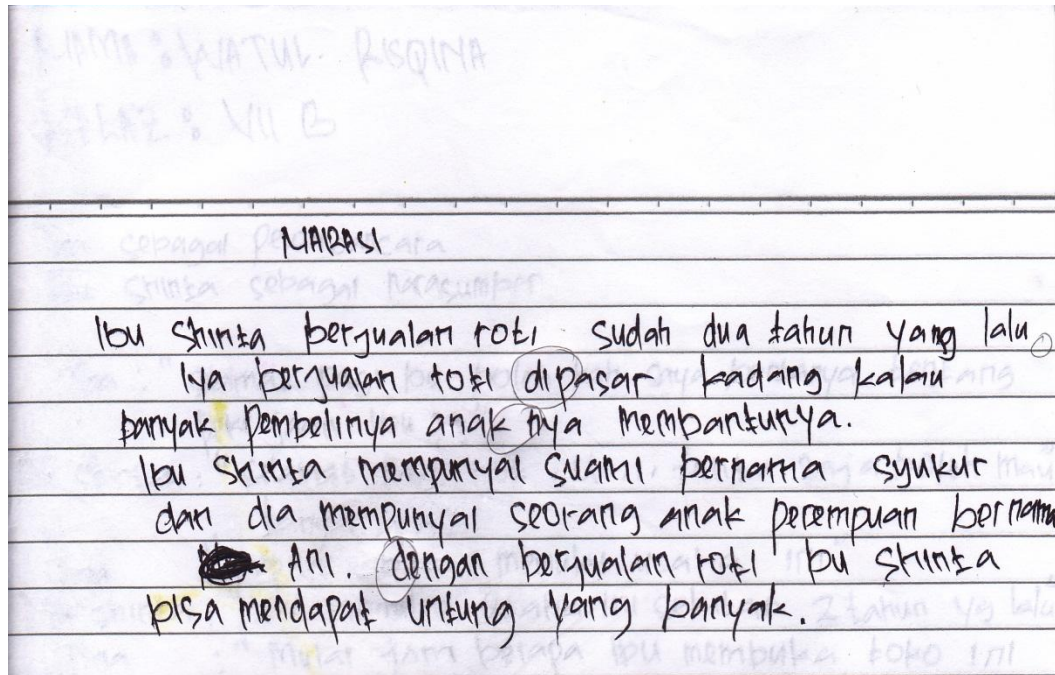 NARASI
Ibu Shinta berjualan roti sudah dua tahun yang lalu.
Iya berjualan roti dipasar kadang kalau
banyak Pembelinya anak nya membantunya.
Ibu Shinta mempunyai Suami bernama syukur
dan dia mempunyai seorang anak perempuan bernama
Ani. dengan berjualan roti bu Shinta
bisa mendapat untung yang banyak.